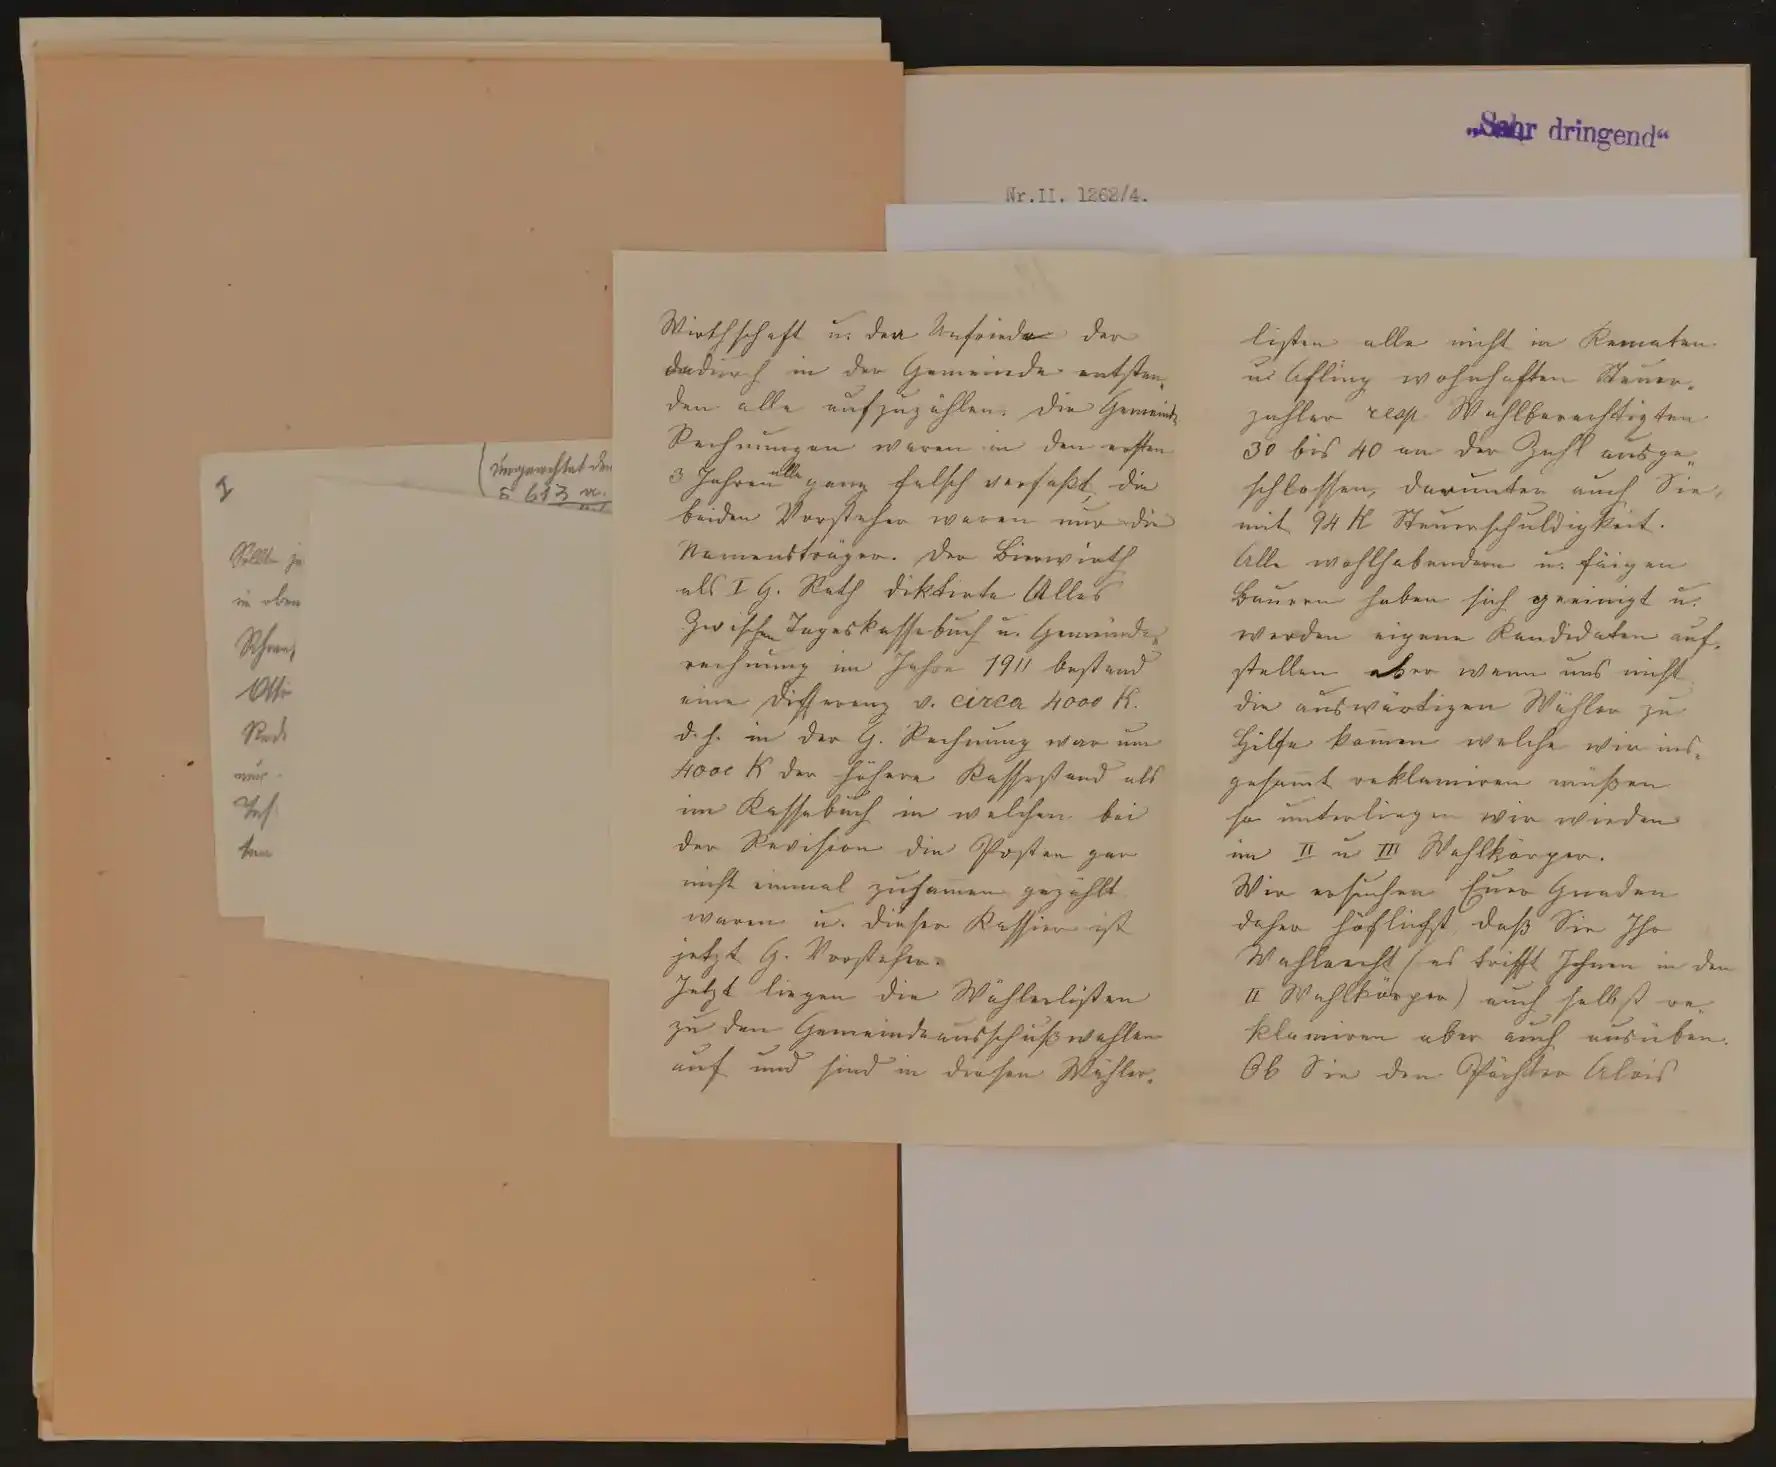 „Sehr dringend“
Nr.II. 1262/4.
I
(Ungeachtet der
§ 613
in oben
Wirthschaft u. der Unfriede der
dadurch in der Gemeinde entstan„
den alle aufzuzählen. Die Gemeinde
Rechnungen waren in den ersten
3 Jahren alle ganz falsch verfaßt, die
beiden Vorsteher waren nur die
Namensträger. Der Bierwirth
als I G. Rath diktirte Alles
Zwischen Tageskassebuch u. Gemeinde„
rechnung im Jahre 1911 bestand
eine Differenz v. circa 4000 K.
d. h. in der G. Rechnung war um
4000 K der höhere Kassestand als
im Kassabuch in welchen bei
der Revision die Posten gar
nicht einmal zusammen gezählt
waren u. dieser Kassier ist
jetzt G. Vorsteher.
Jetzt liegen die Wählerlisten
zu den Gemeindeausschußwahlen
auf und sind in diesen Wähler„
listen alle nicht in Kematen
u. Afling wohnhaften Steuer„
zahler resp. Wahlberechtigten
30 bis 40 an der Zahl ausge„
schlossen, darunter auch Sie,
mit 94 K Steuerschuldigkeit.
Alle wohlhabendern u. fäigen
Bauern haben sich geeinigt u.
werden eigene Kandidaten auf„
stellen aber wenn uns nicht
die auswärtigen Wähler zu
Hilfe kommen welche wir ins„
gesammt reklamiren müßen
so unterliegen wir wieder
im II u III Wahlkörper.
Wir ersuchen Euer Gnaden
daher höflichst, daß Sie Ihr
Wahlrecht (es trifft Ihnen in den
II Wahlkörper) auch selbst re„
klamiren aber auch ausüben.
Ob Sie den Pächter Alois